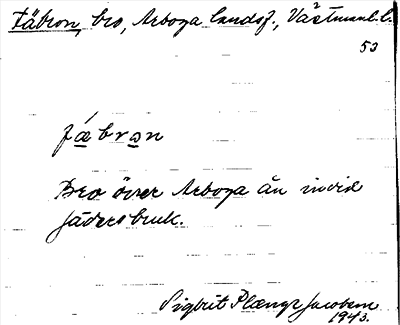 Fäbron, bro, Arboga landsf., Västmanl. l.
53
fæ´bran
Bro över Arboga ån invid
Jädersbruk.
Sigbrit Plænge Jacobson
1943.